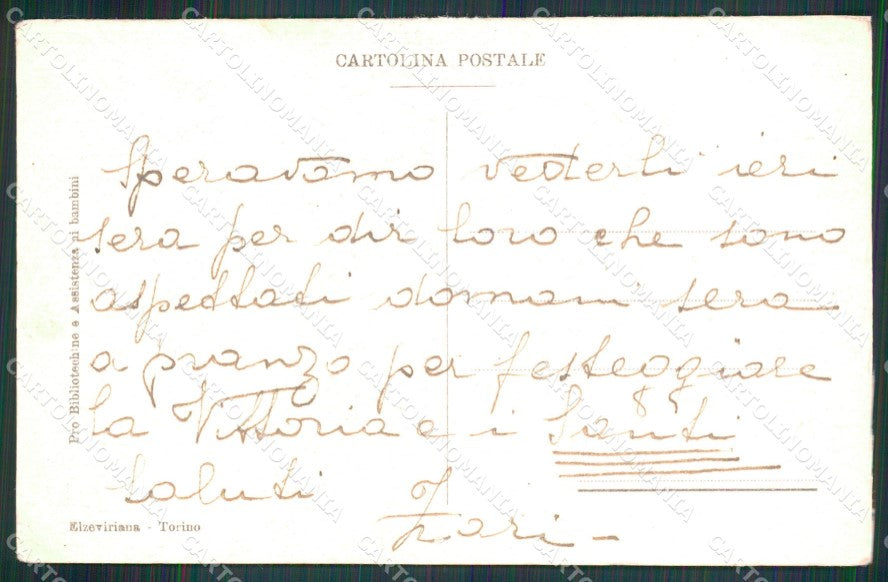 CARTOLINA POSTALE
Speravamo vederli ieri
sera per dir loro che sono
aspettati domani sera
a pranzo per festeggiare
la Vittoria e i Santi
Saluti
Pro Bibliotechine e Assistenza ai bambini
Elzeviriana - Torino
CARTOLINOMANIA